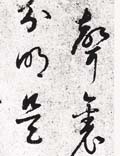 聲裏
分明是